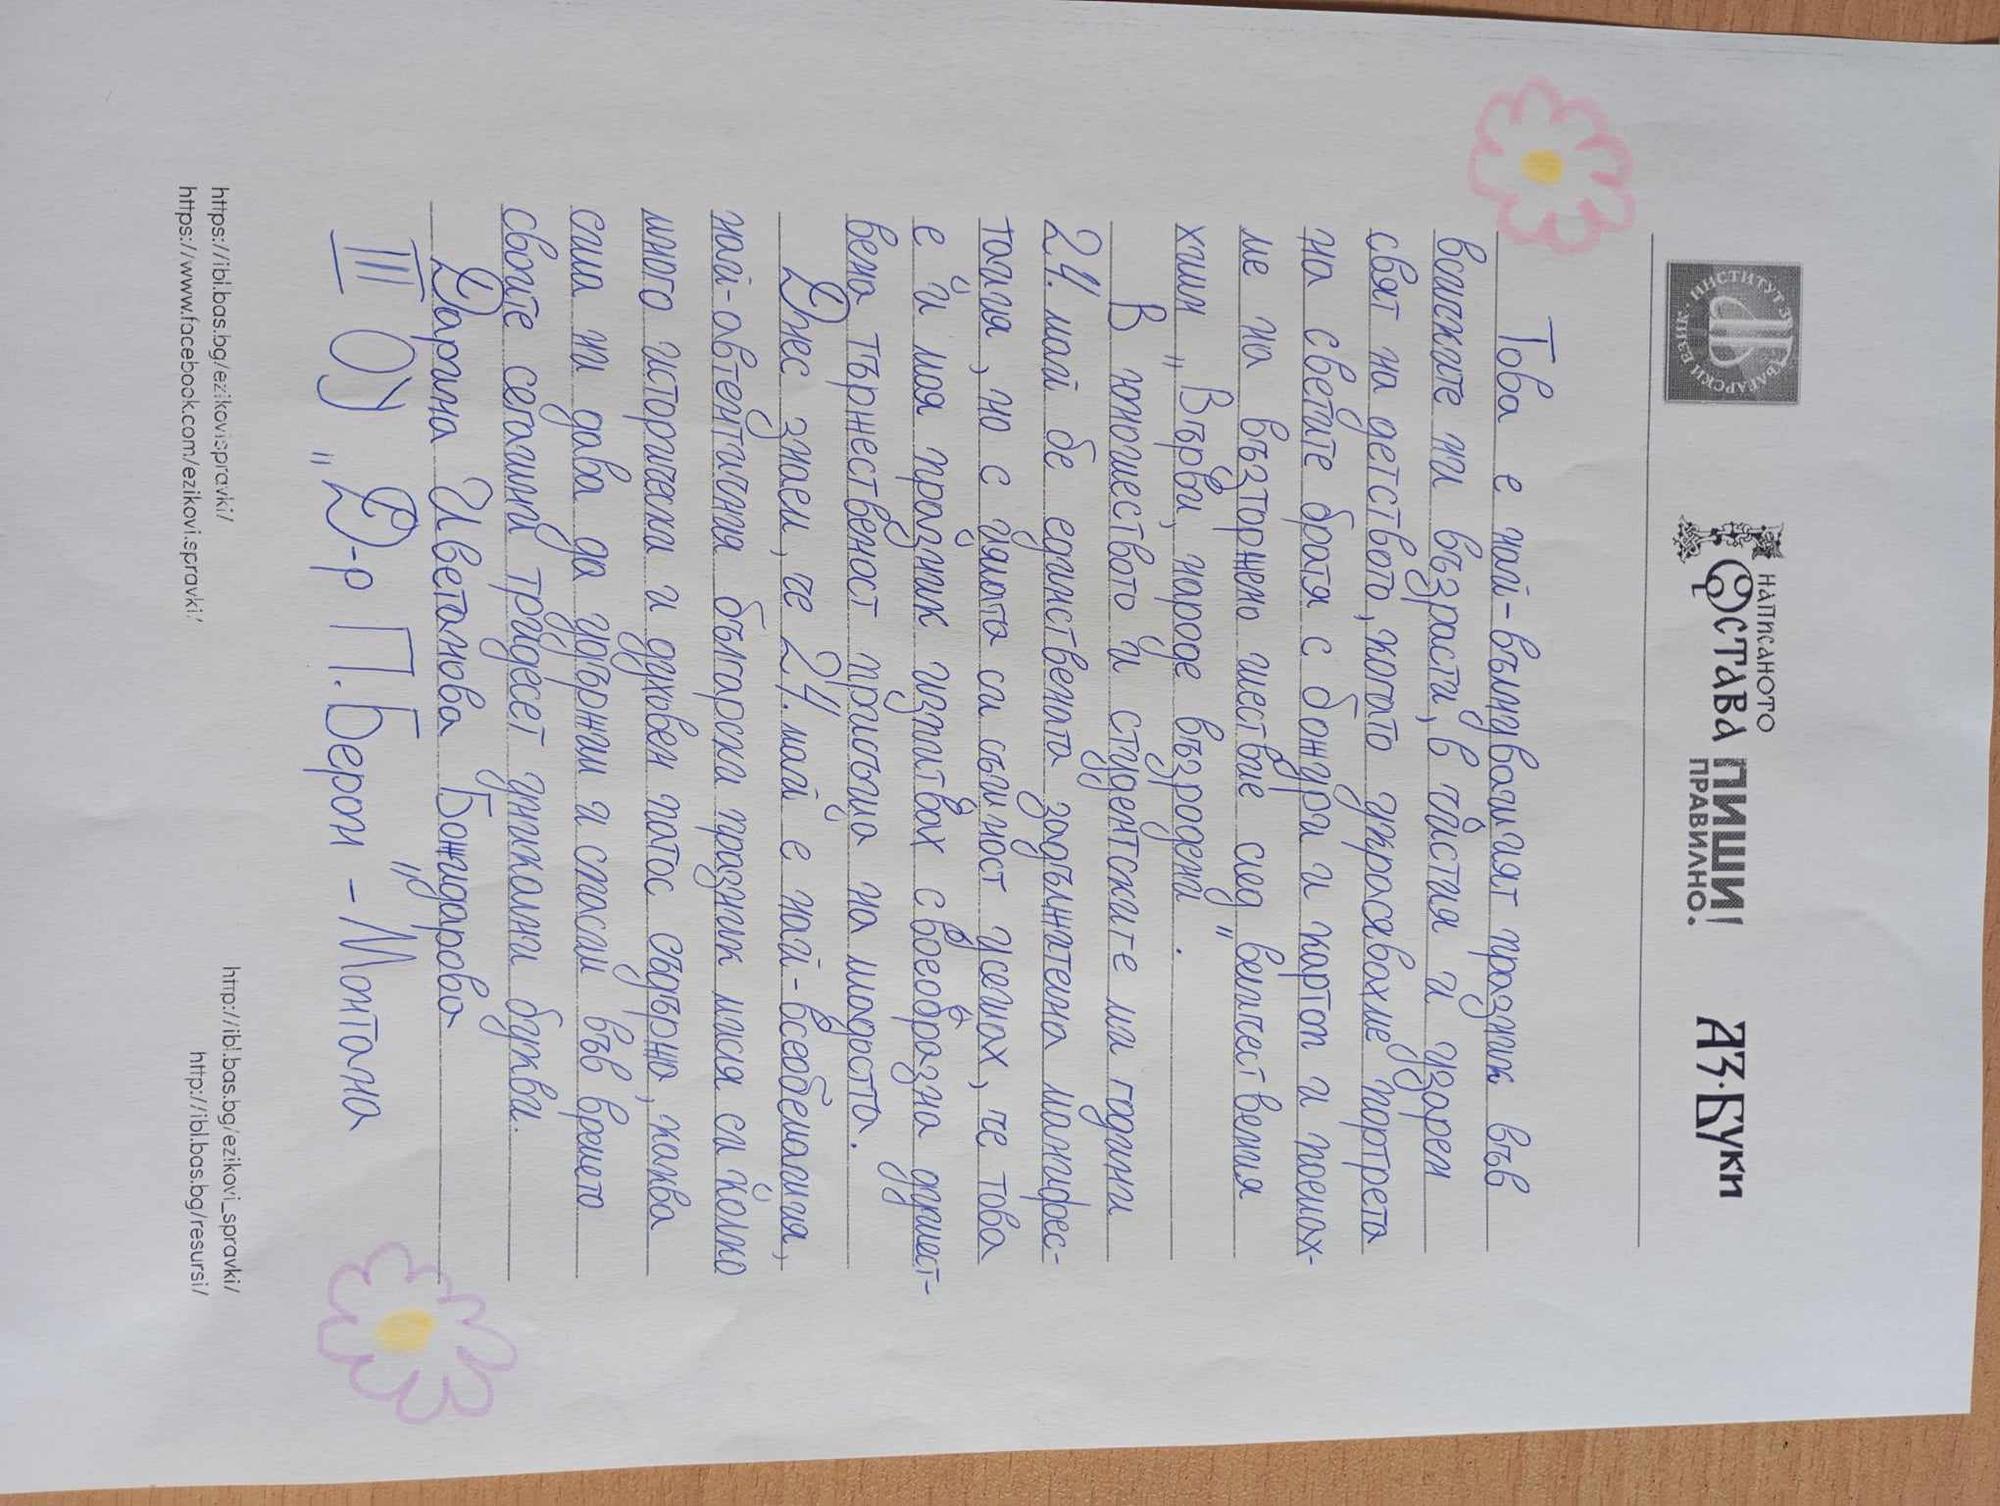 ИНСТИТУТ ЗА БЪЛГАРСКИ ЕЗИК
НАПИСАНОТО
ОСТАВА
ПИШИ!
ПРАВИЛНО.
АЗ·БУКИ
Това е най-вълнуващият празник във
всичките ни възрасти, в чистия и озарен
свят на детството, когато украсявахме портрета
на светите братя с божури и картон и поемах-
ме на възторжено шествие след величествения
химн „Върви, народе възродени".
В юношеството и студентските ми години
24. май бе единствената задължителна манифес-
тация, но с цялата си същност усещах, че това
е и моя празник изпитвах своеобразна душест-
вена тържественост присъща на младостта.
Днес знаем, че 24. май е най-всеобемащия,
най-автентичния български празник мисля си колко
много историческа и духовен патос съдържа, каква
сила ни дава да удържим и спасим във времето
своите сегашни тридесет уникални букви.
Дарина Цветанова Божидарова
III ОУ „Д-р П. Берон" – Монтана
https://ibl.bas.bg/ezikovispravki/
https://www.facebook.com/ezikovi.spravki/
http://ibl.bas.bg/ezikovi_spravki/
http://ibl.bas.bg/resursi/